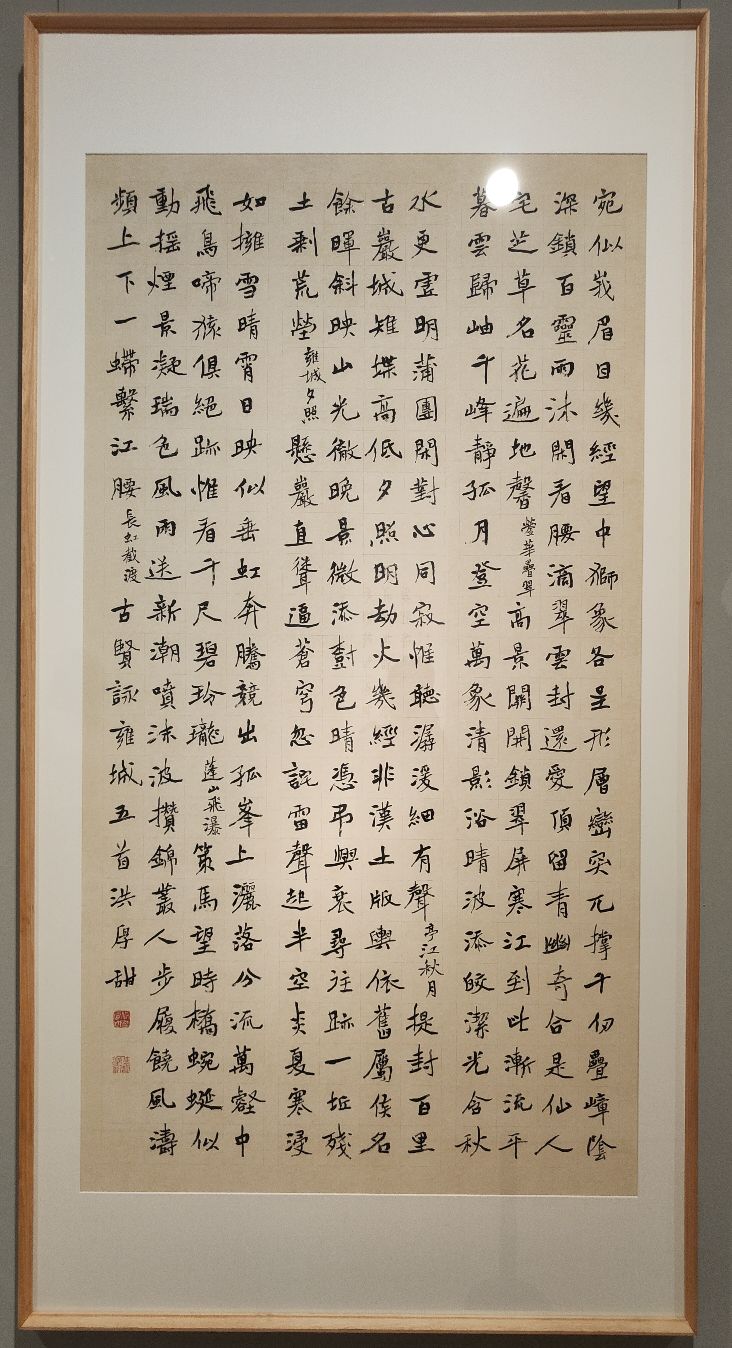 宛似峩眉目幾經望中獅象各呈形層巒突兀撑千仞疊嶂陰
深鎖百靈雨沐閑看腰滴翠雲封還愛頂留青幽奇合是仙人
宅芝草名花遍地馨 瑩華疊翠 高景關開鎖翠屏寒江到此漸流平
暮雲歸岫千峰靜孤月登空萬象清影浴晴波添皎潔光含秋
水更虛明蒲團閑對心同寂惟聽潺湲細有聲 亭江秋月 提封百里
古巖城雉堞高低夕照明劫火幾經非漢土版輿依舊屬侯名
餘暉斜映山光徹晚景微添樹色晴憑弔興衰尋往跡一坵殘
土剩荒塋 雍城夕照 懸巖直聳逼蒼穹忽訝雷聲起半空炎夏寒浸
如擁雪晴霄日映似垂虹奔騰競出孤峯上灑落分流萬壑中
飛鳥啼猿俱絕跡惟看千尺碧玲瓏 蓬山飛瀑 策馬望時橋蜿蜒似
動搖煙景凝瑞色風雨送新潮噴沫波攢錦叢人步履饒風濤
頻上下一蠎繫江腰 長虹截渡 古賢詠雍城五首洪厚甜